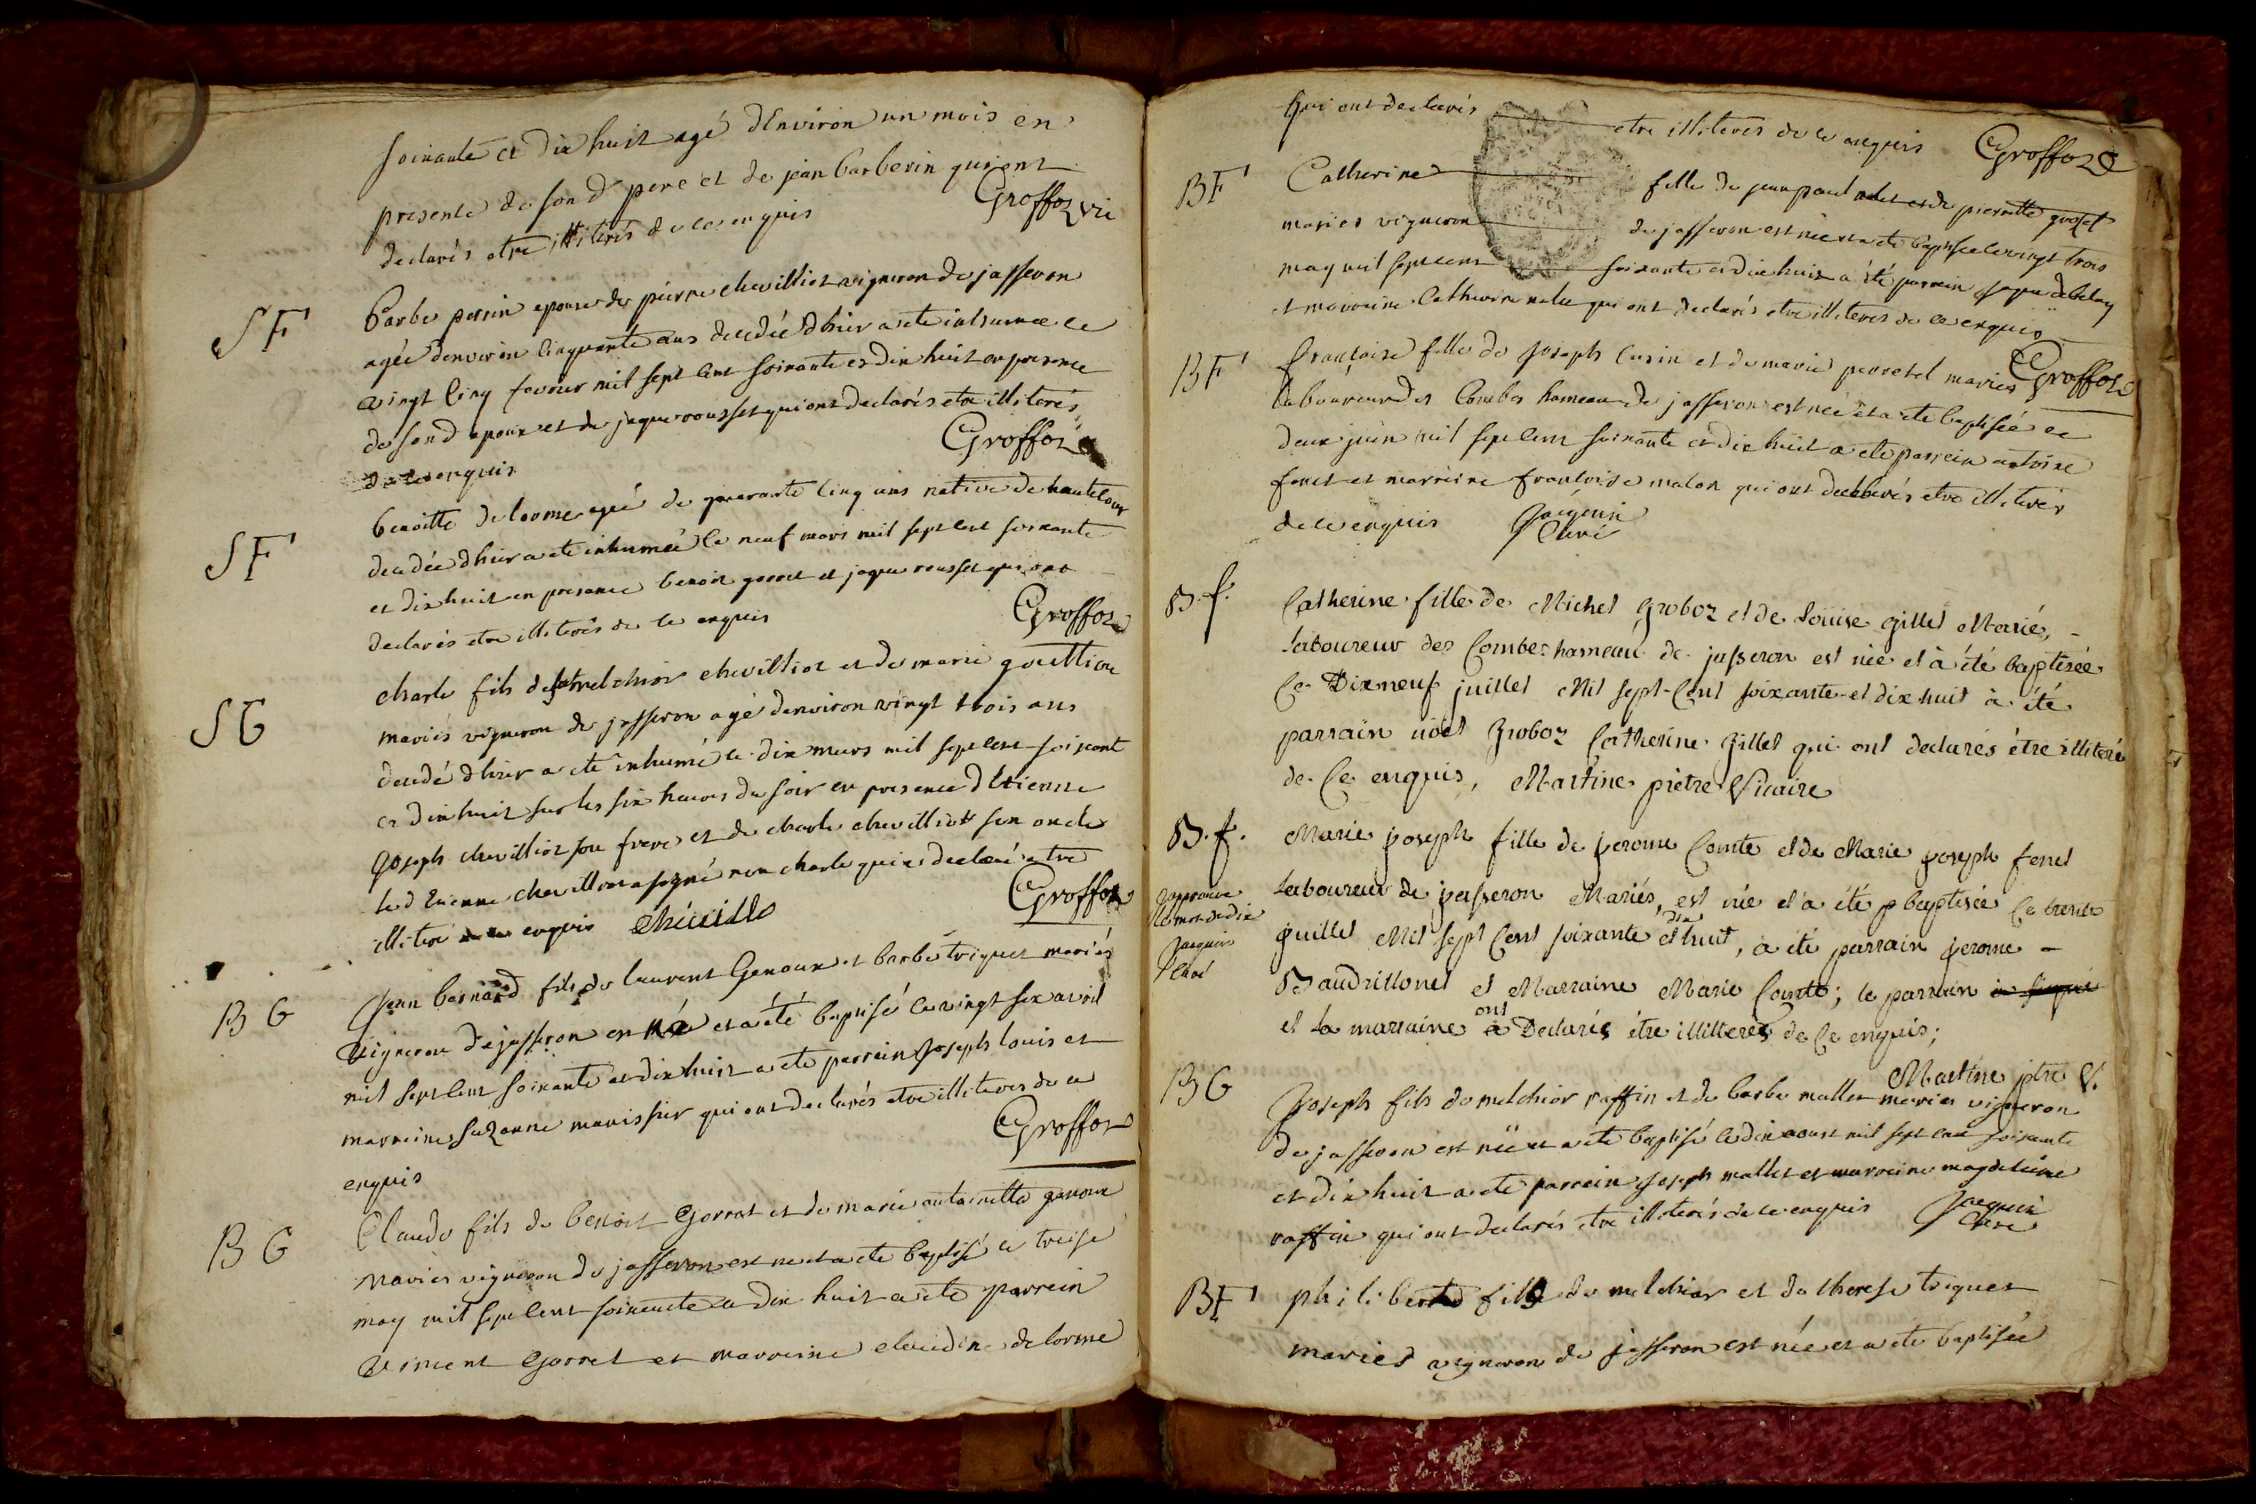 soixante et dix huit agé d'Environ un mois en
presence de sond pere et de jean barberin qui ont
declarés etre illiterés de ce enquis Groffoz vic
SF
Barbe perrin epouse de pierre chevilliot vigneron de jasseron
agée denviron Cinquante ans decedée d'hier a ete inhumée ce
vingt Cinq fevrier mil sept cent soixante et dix huit en presence
de sond epoux et de jaque rousset qui ont declarés etre illiterés
de ce enquis Groffoz
SF
benoitte delorme agée de quarante Cinq ans native de hautecour
decedée d'hier a ete inhumée le neuf mars mil sept cent soixante
et dix huit en presence benoit gorret et jaque rousset qui ont
declarés etre illiterés de ce enquis Groffoz
SG
charle fils de melchior chevilliot et de marie
mariés vigneron de jasseron agé denviron vingt trois ans
decedé d'hier a ete inhumé le dix mars mil sept cent soixante
et dix huit sur les six heures du soir en presence d'Etienne
joseph chevilliot son frere et de charle chevilliott son oncle
led Etienne chevilliot a signé non charle qui a declaré etre
illiteré enquis Groffoz
BG
Jean bernard fils de laurent Genoux et barbe triquet mariés
vigneron de jasseron est né et a été baptisé ce vingt six avril
mil sept cent soixante et dix huit a ete parrein joseph louis et
marreine suzanne manissier qui ont declarés etre illiteres de ce
enquis Groffoz
BG
Claude fils de benoit Gorret et de marie antoinette genoux
mariés vigneron de jasseron est né et a ete baptisé ce treise
may mil sept cent soixante et dix huit a ete parrein
vincent Gorret et marreine claudine delorme
qui ont declarés etre illiterés de ce enquis Groffoz
BF
Catherine fille de jean paul et de pierrette
mariés vigneron de jasseron est née et a ete baptisée ce vingt trois
may mil sept cent soixante et dix huit a été parrein jaque
et marreine Catherine qui ont declarés etre illiteres de ce enquis
Groffoz
BF
françoise fille de joseph cusin et de marie perretel mariés
laboureur des Combes hameau de jasseron est née et a ete baptisée ce
deux juin mil sept cent soixante et dix huit a ete parrein antoine
fenet et marreine françoise malan qui ont declarés etre illiterés
de ce enquis Jacquin
Curé
B.f.
Catherine fille de Michel Groboz et de Louise gillet Mariés,
laboureur des Combes hameau de jasseron est née et à été baptisée
Ce Dixneuf juillet Mil sept-Cent soixante-et dix huit à été
parrain noël Groboz Catherine Gillet qui ont declarés être illiterés
de Ce enquis, Martine prètre Vicaire
B.f.
Marie joseph fille de jerome Comte et de Marie joseph fenet
Laboureur de jasseron Mariés, est née et a été baptisée Ce trente
japprouve
le mot de dix
Jacquin
Curé
juillet Mil sept Cent soixante et dix huit, a été parrain jerome
Baudrillonet et Marraine Marie Comte; le parrain a signé
et la marraine a ont Declarés être illitteres de Ce enquis;
Martine ptre V.
BG
Joseph fils de melchior raffin et de barbe mallet mariés vigneron
de jasseron est né et a ete baptisé ce dix aoust mil sept cent soixante
et dix huit a ete parrein joseph mallet et marreine magdeleine
raffin qui ont declarés etre illiterés de ce enquis Jacquin
Curé
BF
philiberte fille de melchior et de therese triquet
mariés vigneron de jasseron est née et a ete baptisée